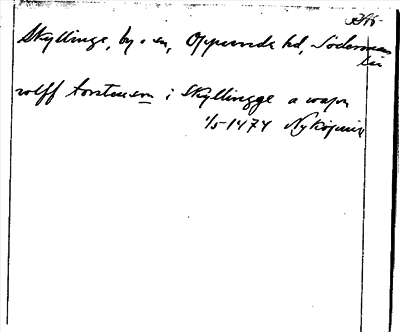 Skyllinge, by o en, Oppunda hd, Söderman
län
rolff torstensson i Skyllingge a wapn
1/5 1474 Nyköping